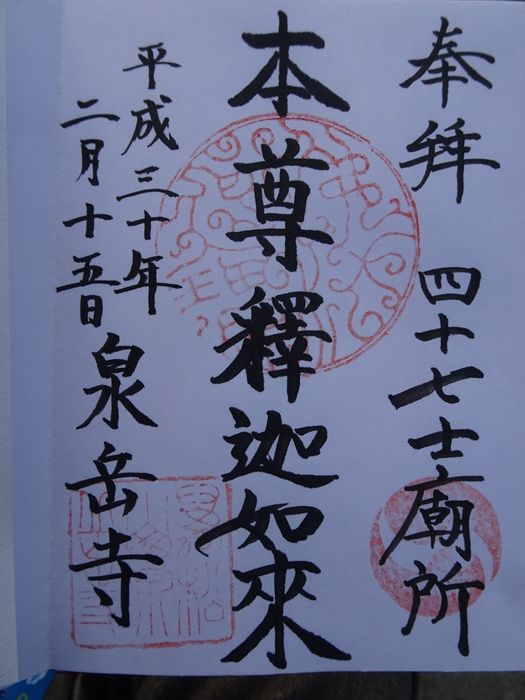 奉拜 四十七士廟所
本尊釋迦如來
平成三十年
二月十五日
泉岳寺